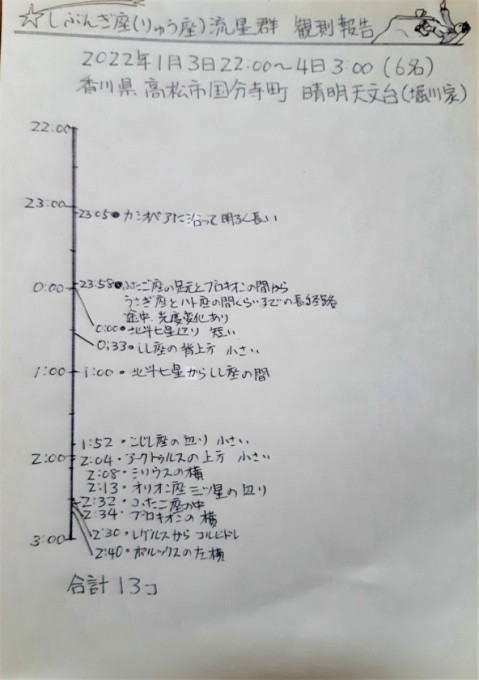 ☆しぶんぎ座(りゅう座)流星群 観測報告
2022年1月3日22:00〜4日3:00 (6名)
香川県高松市国分寺町 晴明天文台(堀川家)
22:00
23:00
23:05・カシオペアに沿って明るく長い
0:00
23:58・ふたご座の足元とプロキオンの間から
うさぎ座とハト座の間くらいまでの長経路
途中、光度変化あり
0:00・北斗七星辺り 短い
0:33・しし座の背上方 小さい
1:00
1:00・北斗七星からしし座の間
1:52・こじし座の辺り 小さい
2:00
2:04・アークトゥルスの上方 小さい
2:08・シリウスの横
2:13・オリオン座三ツ星の辺り
2:32・ふたご座の中
2:34・プロキオンの横
2:30・レグルスからコルヒドレ
2:40・ポルックスの左横
3:00
合計13コ